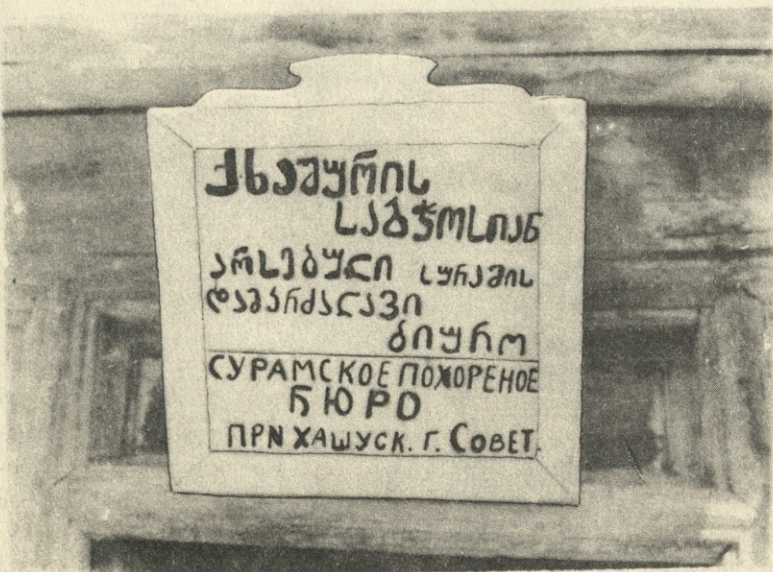 ქხაშურის
საბჭოსიან
არსებული სურამის
დამარძალავი
ბიურო
СУРАМСКОЕ ПОХОРЕНОЕ
БЮРО
ПРИ ХАШУСК. Г. СОВЕТ.